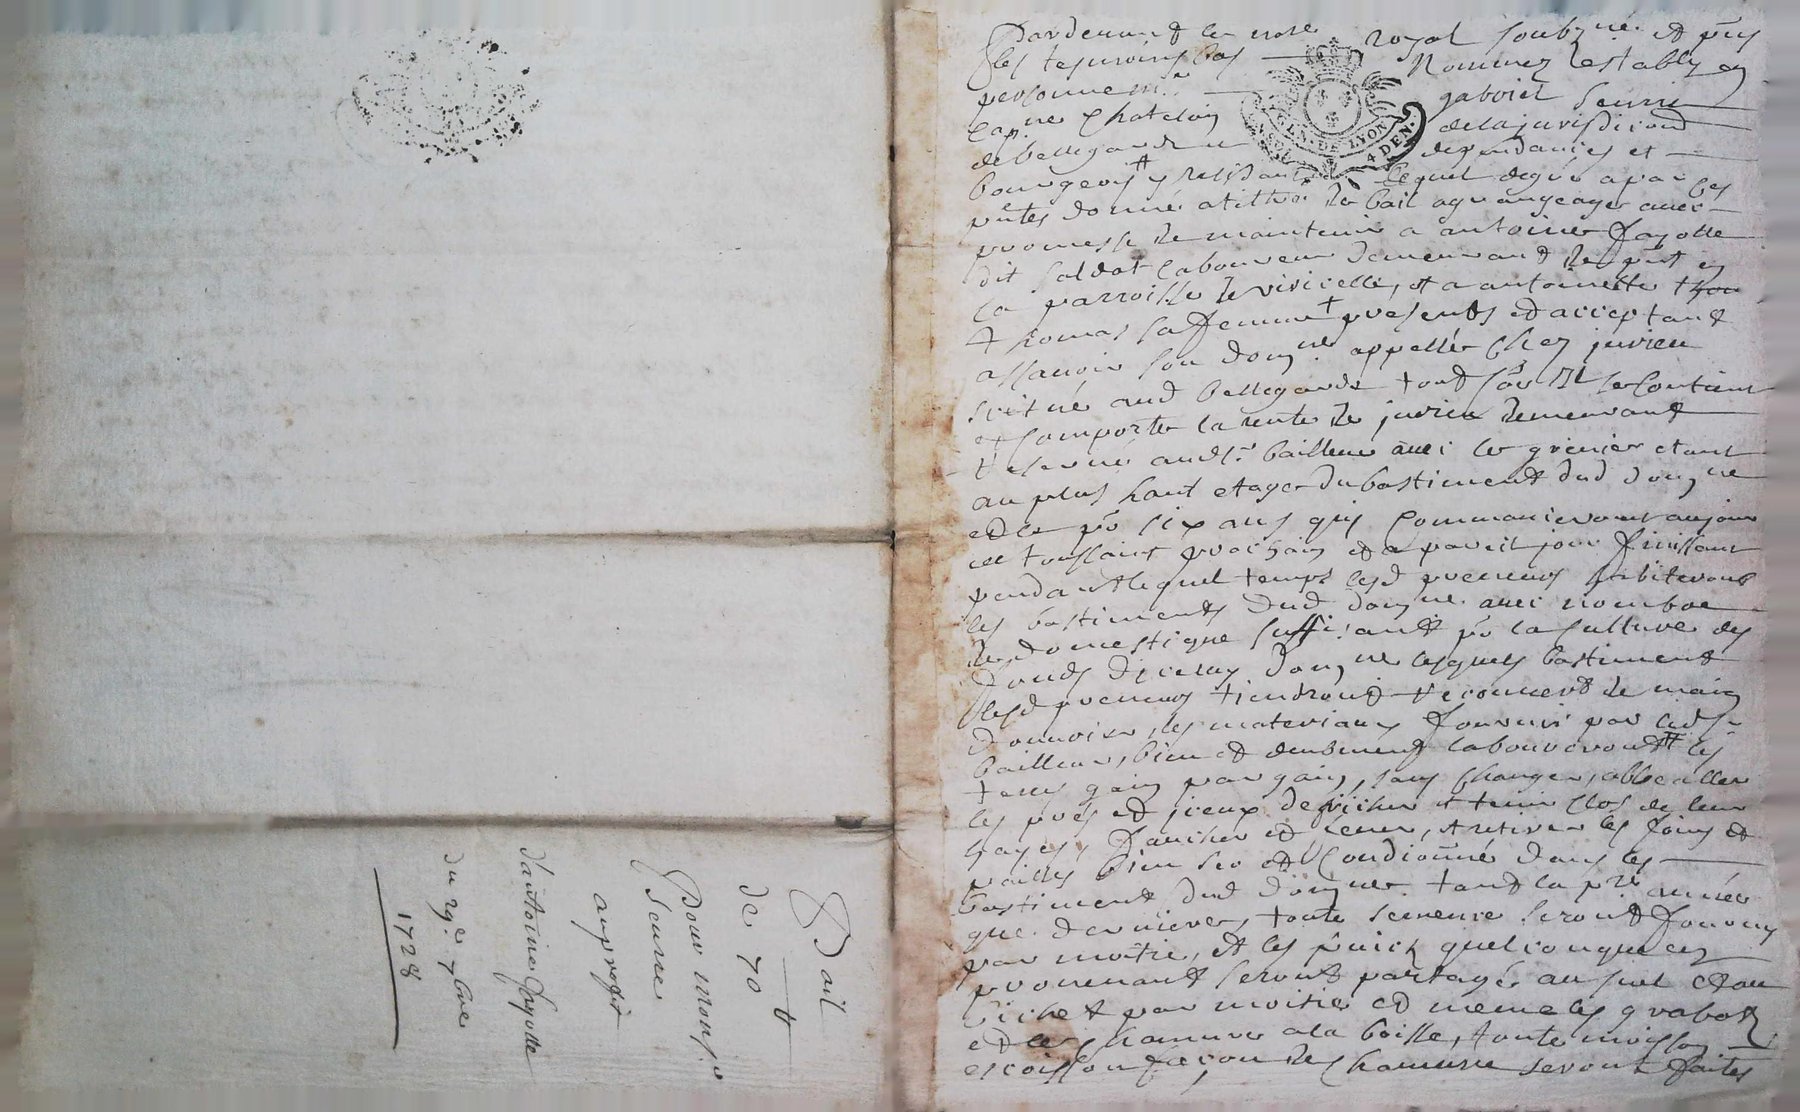 Pardevant le nore royal soubzne et pnts
les tesmoins bas Nommez Estably en
personnemt gabriel seurre
capne Chatelain de la jurisdicond
de bellegarde dependances et
bourgeois y residant lequel degré a par ces
pntes donné a tiltre de bail a grangeage avec
promesse de maintenir a antoine fayolle
dit soldat laboureur demeurant de pnt en
la parroisse de viricelle, et a antoinette
thomas sa femme presents et acceptant
assavoir son domne appellé chez jurieu
scitué aud bellegarde tout soe Il se Contient
et Comporte la rente de jurieu demeurant
reservé audsr bailleur avec le grenier etant
au plus haut etage du bastiment dud domne
et ce po six ans qui Commanceront au jour
de toussaint prochain et a pareil jour finissant
pendant lequel temps lesd preneurs habiteront
les bastiments dud domne avec nombre
de domestique suffisant po la Culture des
fonds d'iceluy domne lesquels bastiment
lesd preneurs tiendront recouvert de main
d'ouvrier, les materiaux fournis par ledsr
bailleur, bien et deubment laboureront les
terres gain par gain, sans changer,
les prés et iceux deficher et tenir clos de leur
hayes, faucher et fener, et retirer les foins et
pailles bien sec et Conditionné dans les
bastiment dud domne tant la pre année
que derniere, toute semence seront fournis
par moitié, et les fruits quelconque en
provenant seront partagé au suel et au
bichet par moitié et meme les grabots
et le chanvre a la boille, toute moisson
escoisson façon de chanvre seront faites
Bail
de 70 tt
Pour monsr
Seurre
au proffit
d'antoine fayolle
du 29e 7bre
1728
G.EN. DE LYON
4 DEN.